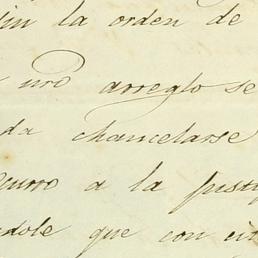 la orden de
uro arreglo se
da chancelarse
curro a la
dole que con